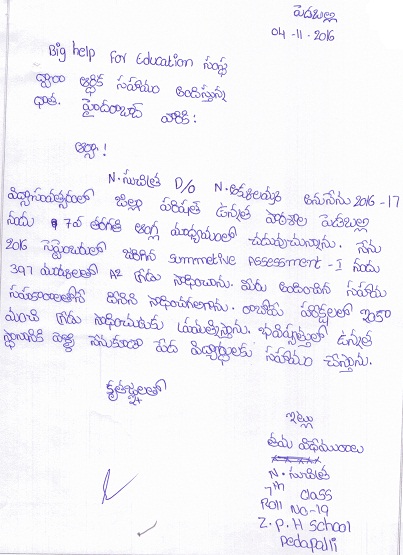 పెదబల్లి
04-11-2016
Big help For Education సంస్థ
ద్వారా ఆర్థిక సహాయం అందిస్తున్న
దాత. హైదరాబాద్ వారికి:
ఆర్యా!
N. సుచిత్ర D/O N. అను నేను 2016-17
విద్యాసంవత్సరంలో జిల్లా పరిషత్ ఉన్నత పాఠశాల పెదబల్లి
నందు 7వ తరగతి ఆంగ్ల మాధ్యమంలో చదువుచున్నాను. నేను
2016 సెప్టెంబరులో జరిగిన summetive Assessment-I నందు
397 మార్కులతో A2 గ్రేడు సాధించాను. మీరు అందించిన సహాయ
సహకారాలతోనే దీనిని సాధించగలిగాను. రాబోయే పరీక్షలలో ఇంకా
మంచి గ్రేడు సాధించుటకు ప్రయత్నిస్తాను. భవిష్యత్తులో ఉన్నత
స్థానానికి వెళ్ళి నేనుకూడా పేద విద్యార్థులకు సహాయం చేస్తాను.
కృతజ్ఞతలతో
ఇట్లు
తమ విధేయురాలు
N. సుచిత్ర
7th class
Roll No-19
Z.P.H School
Pedapalli